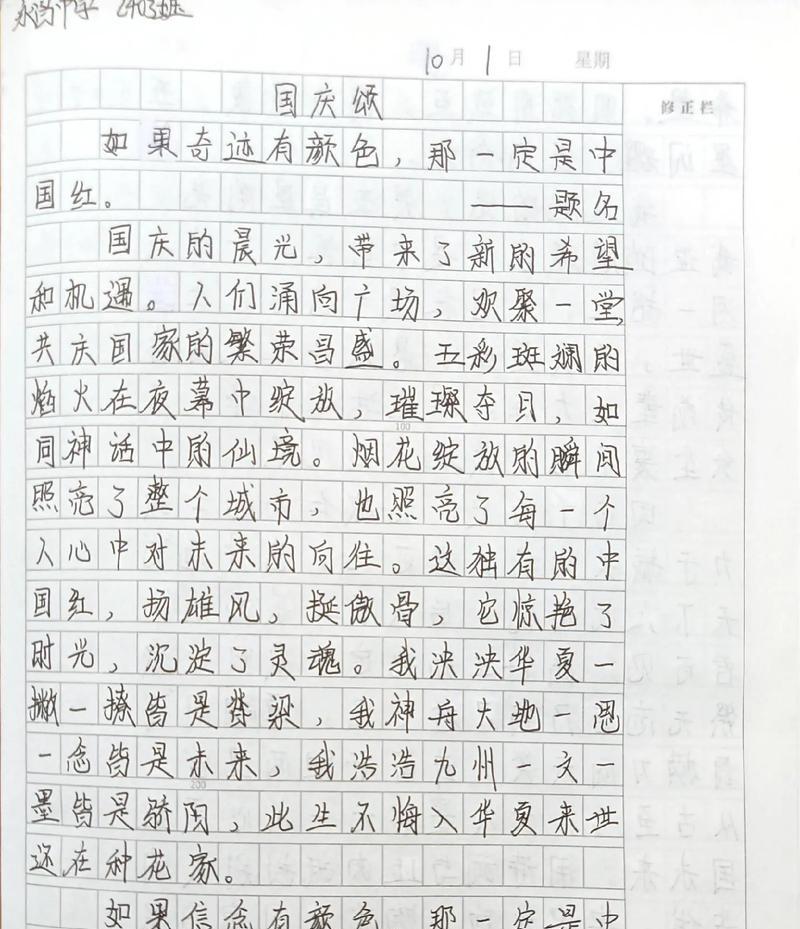 中学 2403班
10月1日 星期
修正栏
国庆颂
如果奇迹有颜色，那一定是中
国红。 ——题名
国庆的晨光，带来了新的希望
和机遇。人们涌向广场，欢聚一堂，
共庆国家的繁荣昌盛。五彩斑斓的
焰火在夜幕中绽放，璀璨夺目，如
同神话中的仙境。烟花绽放的瞬间
照亮了整个城市，也照亮了每一个
人心中对未来的向往。这独有的中
国红，扬雄风，挺傲骨，它惊艳了
时光，沉淀了灵魂。我泱泱华夏一
撇一捺皆是脊梁，我神舟大地一思
一念皆是未来，我浩浩九州一文一
墨皆是骄阳，此生不悔入华夏来世
还在种花家。
如果信念有颜色，那一定是中
100
200